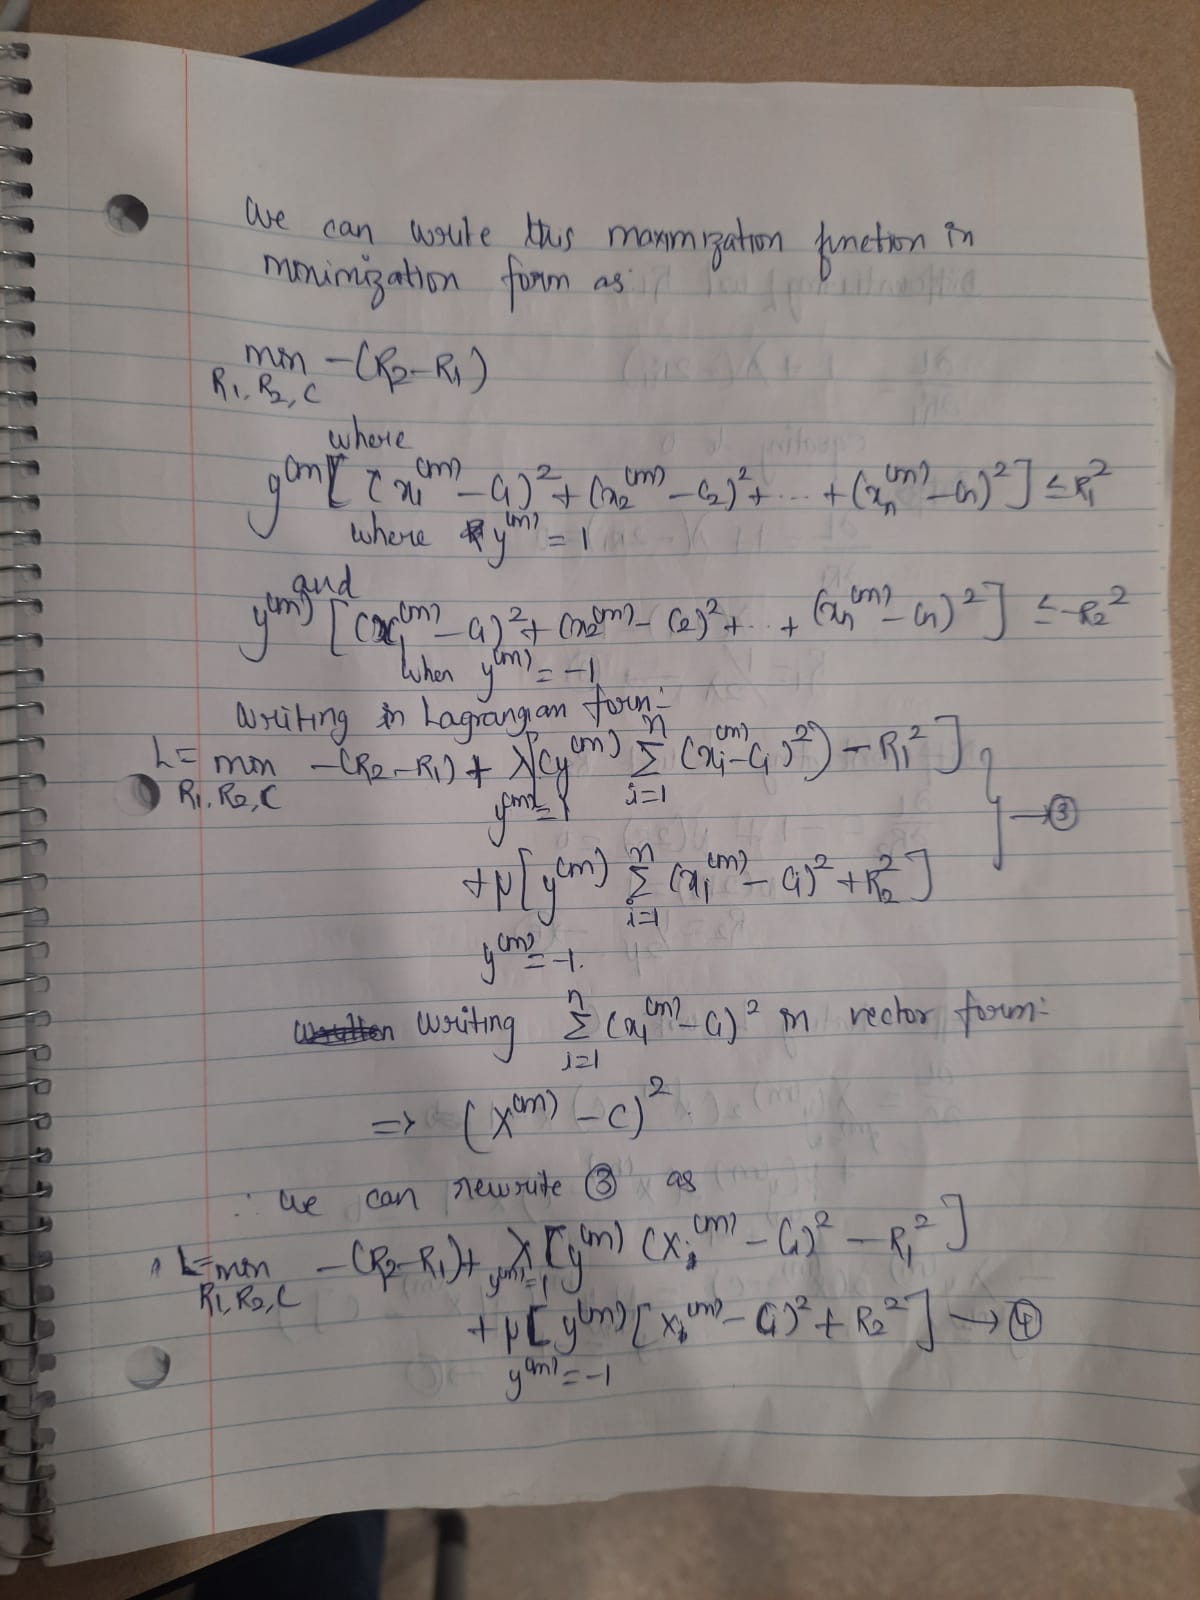 We can write this maximization function in
minimization form as:
min -(R2-R1)
R1, R2, C
where
y^(m) [ (x1^(m) - C1)^2 + (x2^(m) - C2)^2 + ... + (xn^(m) - Cn)^2 ] ≤ R1^2
where y^(m) = 1
and
y^(m) [ (x1^(m) - C1)^2 + (x2^(m) - C2)^2 + ... + (xn^(m) - Cn)^2 ] ≤ -R2^2
when y^(m) = -1
Writing in Lagrangian form:-
L = min -(R2-R1) + λ[(y^(m) Σ (xi^(m) - Ci)^2) - R1^2]
R1, R2, C y^(m)=1 i=1 n
→ ③
+ μ[y^(m) Σ (xi^(m) - Ci)^2 + R2^2]
n i=1
y^(m) = -1.
Writing Σ (xi^(m) - Ci)^2 in vector form:-
n i=1
=> (X^(m) - C)^2
∴ we can rewrite ③ as
L = min -(R2-R1) + λ[y^(m) (Xi^(m) - Ci)^2 - R1^2]
R1, R2, C y^(m)=1
+ μ[y^(m) [Xi^(m) - Ci)^2 + R2^2] → ④
y^(m) = -1